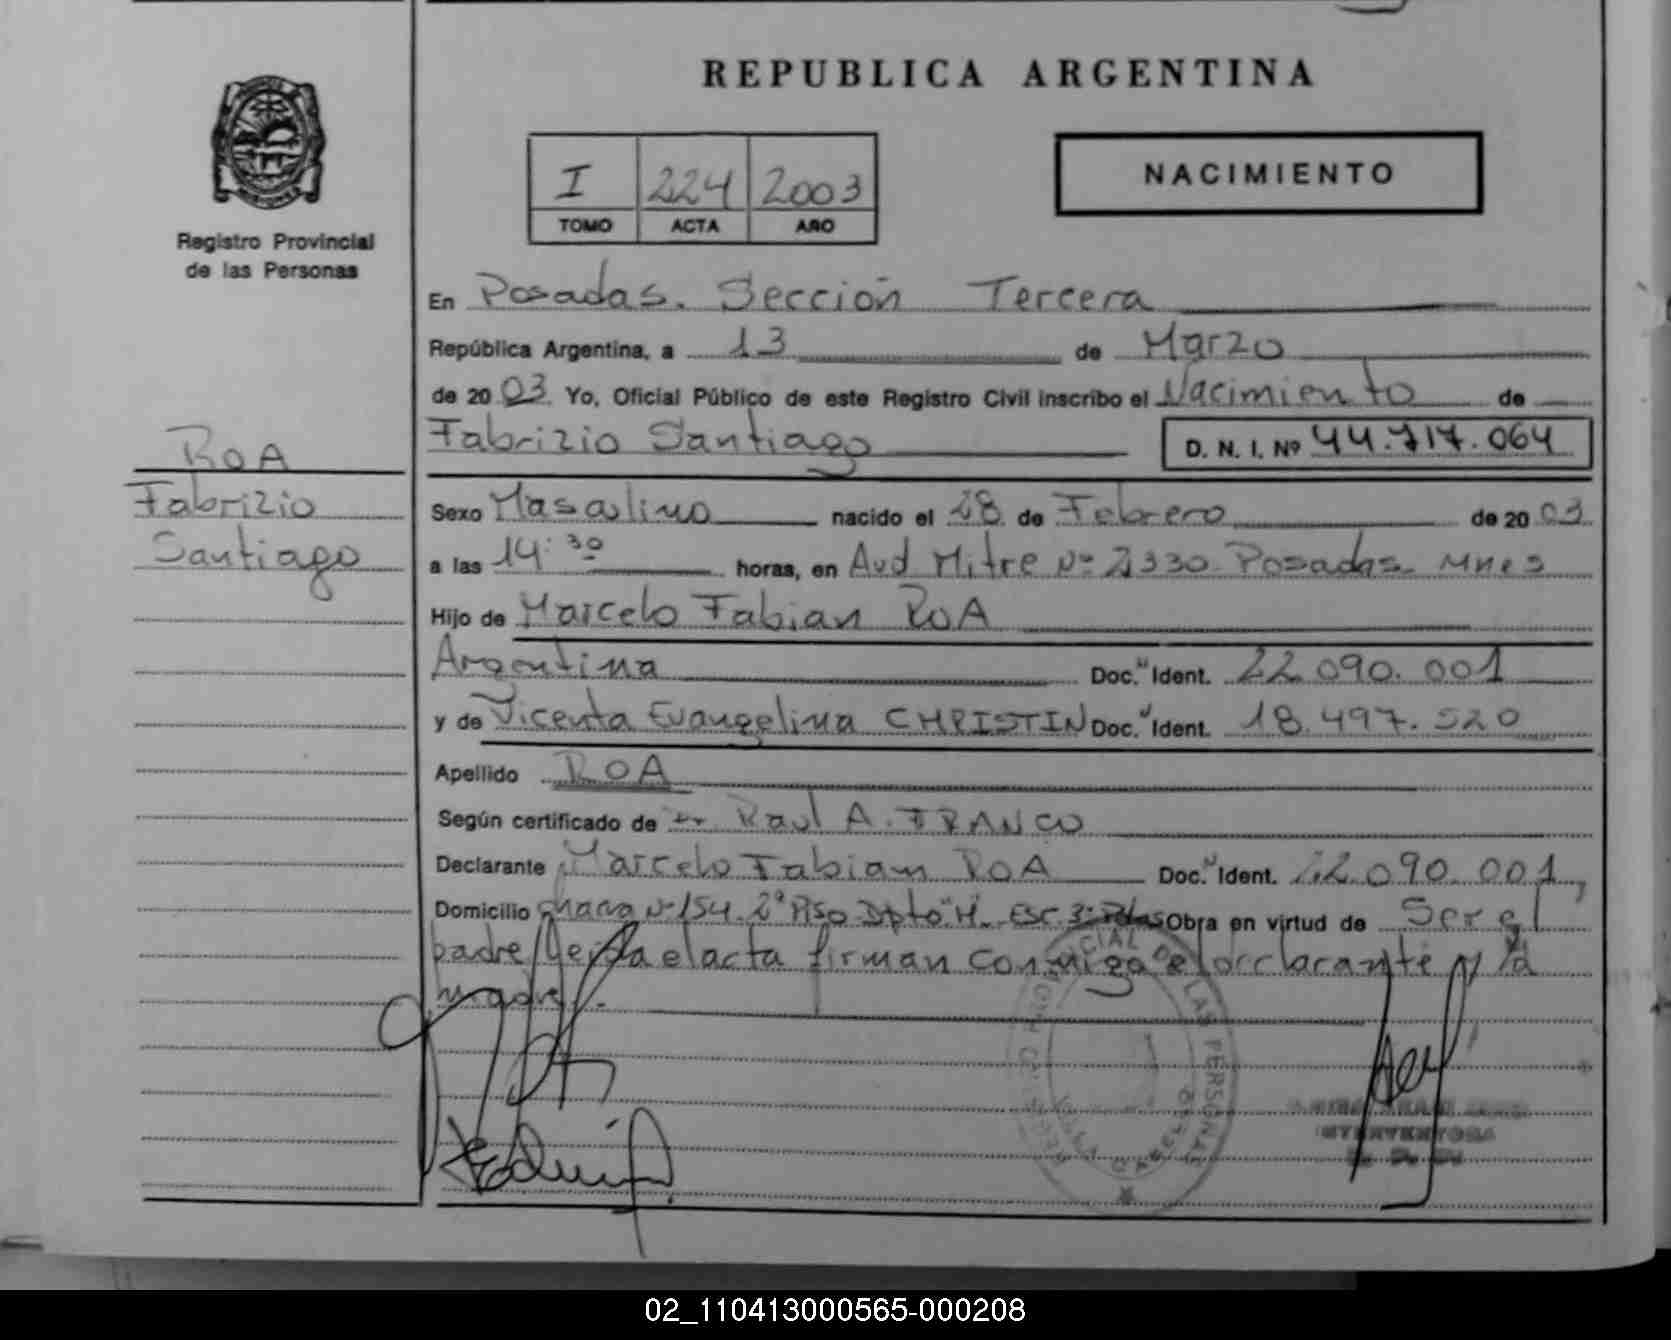 REPUBLICA ARGENTINA
I 224 2003
TOMO ACTA AÑO
NACIMIENTO
Registro Provincial
de las Personas
En Posadas. Sección Tercera
República Argentina, a 13 de Marzo
de 2003 Yo, Oficial Público de este Registro Civil inscribo el Nacimiento de
Fabrizio Santiago D. N. I. Nº 44.717.064
ROA
Fabrizio
Santiago
Sexo Masculino nacido el 28 de Febrero de 2003
a las 14:30 horas, en Avd Mitre Nº 2330 Posadas Mnes
Hijo de Marcelo Fabian ROA
Argentina Doc. Ident. 22.090.001
y de Vicenta Evangelina CHRISTIN Doc. Ident. 18.497.520
Apellido ROA
Según certificado de Dr. Raul A. FRANCO
Declarante Marcelo Fabian ROA Doc. Ident. 22.090.001,
Domicilio Nº 154. 2º Piso Dpto "H" Esc. 3 Pdas Obra en virtud de Ser el
padre Leida el acta firman conmigo el declarante y la
madre.-
PERSONAS
INTERVENTORA
02_110413000565-000208